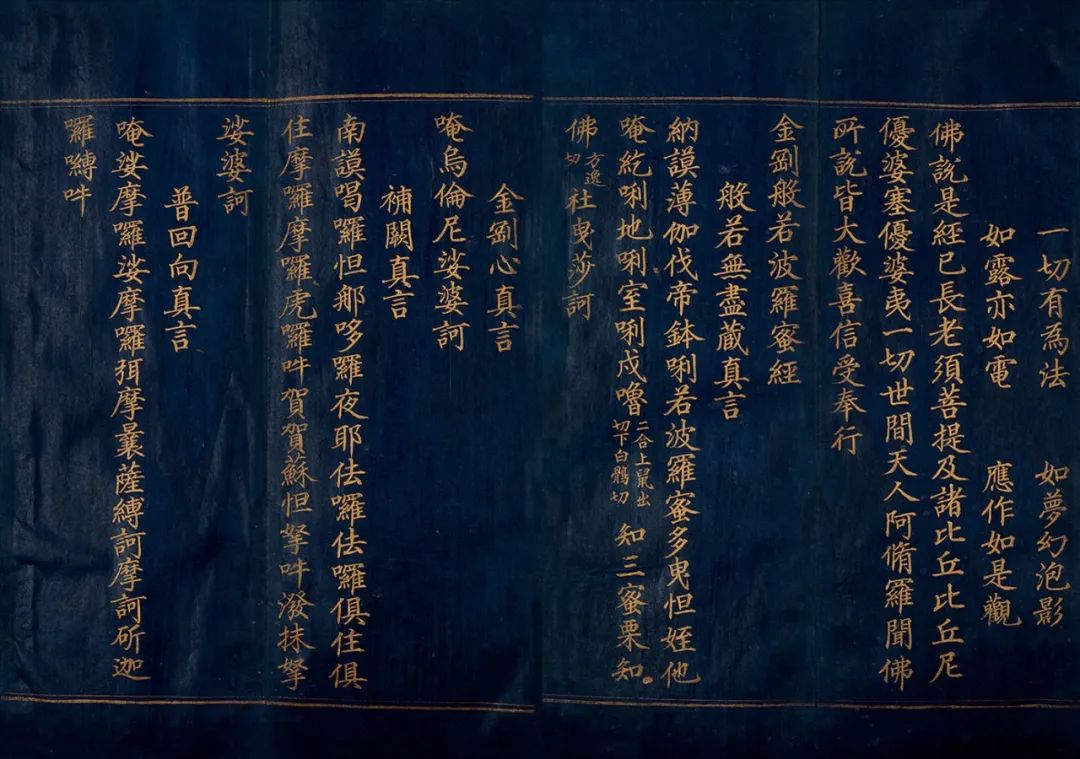 一切有為法　如夢幻泡影
如露亦如電　應作如是觀
佛說是經已長老須菩提及諸比丘比丘尼
優婆塞優婆夷一切世間天人阿脩羅聞佛
所說皆大歡喜信受奉行
金剛般若波羅蜜經
般若無盡藏真言
納謨薄伽伐帝鉢唎若波羅蜜多曳怛姪他
唵紇唎地唎室唎戍嚕二合上鼠出切下白鶻切知三蜜栗知
佛方逸切社曳莎訶
金剛心真言
唵烏倫尼娑婆訶
補闕真言
南謨喝囉怛那哆囉夜耶佉囉佉囉俱住俱
住摩囉摩囉虎囉吽賀賀蘇怛拏吽潑抹拏
娑婆訶
普回向真言
唵娑摩囉娑摩囉弭摩曩薩縛訶摩訶斫迦
囉縛吽